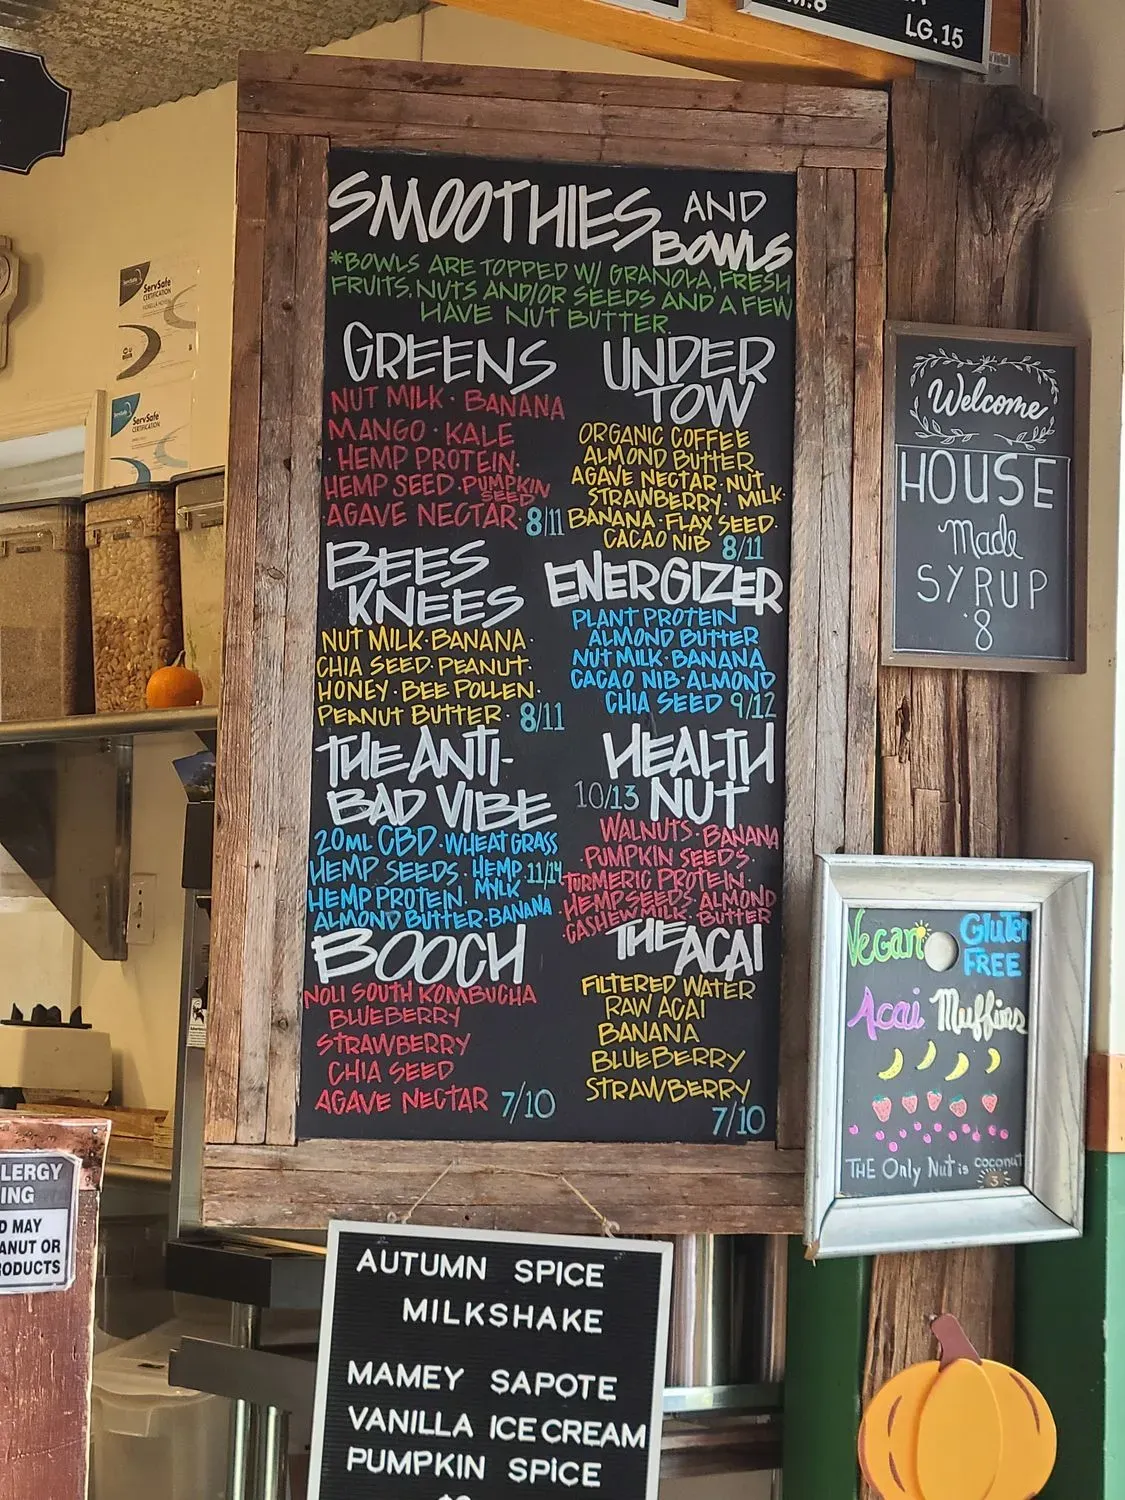 LG.15
ServSafe
CERTIFICATION
ServSafe
CERTIFICATION
SMOOTHIES AND
BOWLS
*BOWLS ARE TOPPED W/ GRANOLA, FRESH
FRUITS, NUTS AND/OR SEEDS AND A FEW
HAVE NUT BUTTER.
GREENS
NUT MILK · BANANA
MANGO · KALE
· HEMP PROTEIN ·
HEMP SEED · PUMPKIN
SEED
· AGAVE NECTAR · 8/11
UNDER
TOW
ORGANIC COFFEE
ALMOND BUTTER
AGAVE NECTAR · NUT
STRAWBERRY · MILK ·
BANANA · FLAX SEED ·
CACAO NIB 8/11
BEES
KNEES
NUT MILK · BANANA ·
CHIA SEED · PEANUT ·
HONEY · BEE POLLEN ·
PEANUT BUTTER · 8/11
ENERGIZER
PLANT PROTEIN
ALMOND BUTTER
NUT MILK · BANANA
CACAO NIB · ALMOND
CHIA SEED 9/12
THE ANTI-
BAD VIBE
20ML CBD · WHEATGRASS
HEMP SEEDS · HEMP 11/14
MYLK
HEMP PROTEIN ·
ALMOND BUTTER · BANANA
HEALTH
10/13 NUT
WALNUTS · BANANA
· PUMPKIN SEEDS ·
TURMERIC PROTEIN ·
· HEMP SEEDS · ALMOND
· CASHEW MILK · BUTTER
BOOCH
NOLI SOUTH KOMBUCHA
BLUEBERRY
STRAWBERRY
CHIA SEED
AGAVE NECTAR 7/10
THE ACAI
FILTERED WATER
RAW ACAI
BANANA
BLUEBERRY
STRAWBERRY
7/10
Welcome
HOUSE
Made
SYRUP
·8
Vegan Gluten
FREE
Acai Muffins
THE Only Nut is coconut
3
LERGY
ING
D MAY
ANUT OR
ODUCTS
AUTUMN SPICE
MILKSHAKE
MAMEY SAPOTE
VANILLA ICE CREAM
PUMPKIN SPICE